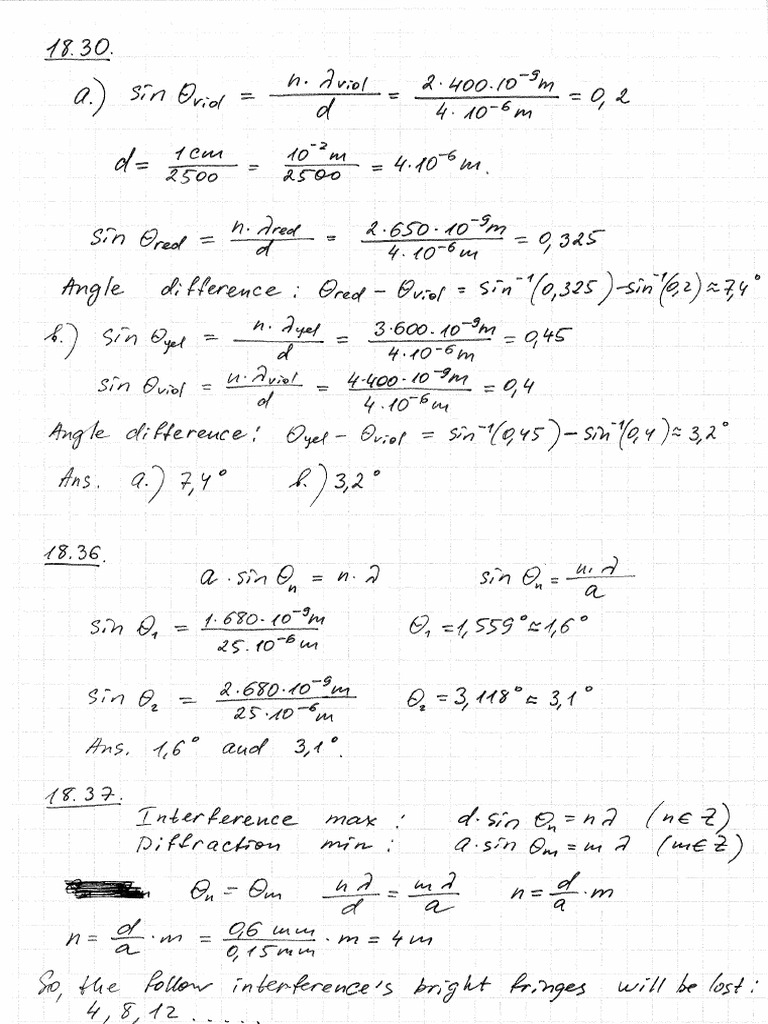 18.30.
a.) sin θviol = n·λviol / d = 2·400·10⁻⁹m / 4·10⁻⁶m = 0,2
d = 1cm / 2500 = 10⁻²m / 2500 = 4·10⁻⁶m.
sin θred = n·λred / d = 2·650·10⁻⁹m / 4·10⁻⁶m = 0,325
Angle difference: θred − θviol = sin⁻¹(0,325) − sin⁻¹(0,2) ≈ 7,4°
b.) sin θyel = n·λyel / d = 3·600·10⁻⁹m / 4·10⁻⁶m = 0,45
sin θviol = n·λviol / d = 4·400·10⁻⁹m / 4·10⁻⁶m = 0,4
Angle difference: θyel − θviol = sin⁻¹(0,45) − sin⁻¹(0,4) ≈ 3,2°
Ans. a.) 7,4° b.) 3,2°
18.36.
a·sin θn = n·λ sin θn = n·λ / a
sin θ₁ = 1·680·10⁻⁹m / 25·10⁻⁶m θ₁ = 1,559° ≈ 1,6°
sin θ₂ = 2·680·10⁻⁹m / 25·10⁻⁶m θ₂ = 3,118° ≈ 3,1°
Ans. 1,6° and 3,1°.
18.37.
Interference max: d·sin θn = nλ (n∈Z)
Diffraction min: a·sin θm = mλ (m∈Z)
θn = θm nλ / d = mλ / a n = d / a · m
n = d / a · m = 0,6 mm / 0,15mm · m = 4m
So, the follow interference's bright fringes will be lost:
4, 8, 12 .....